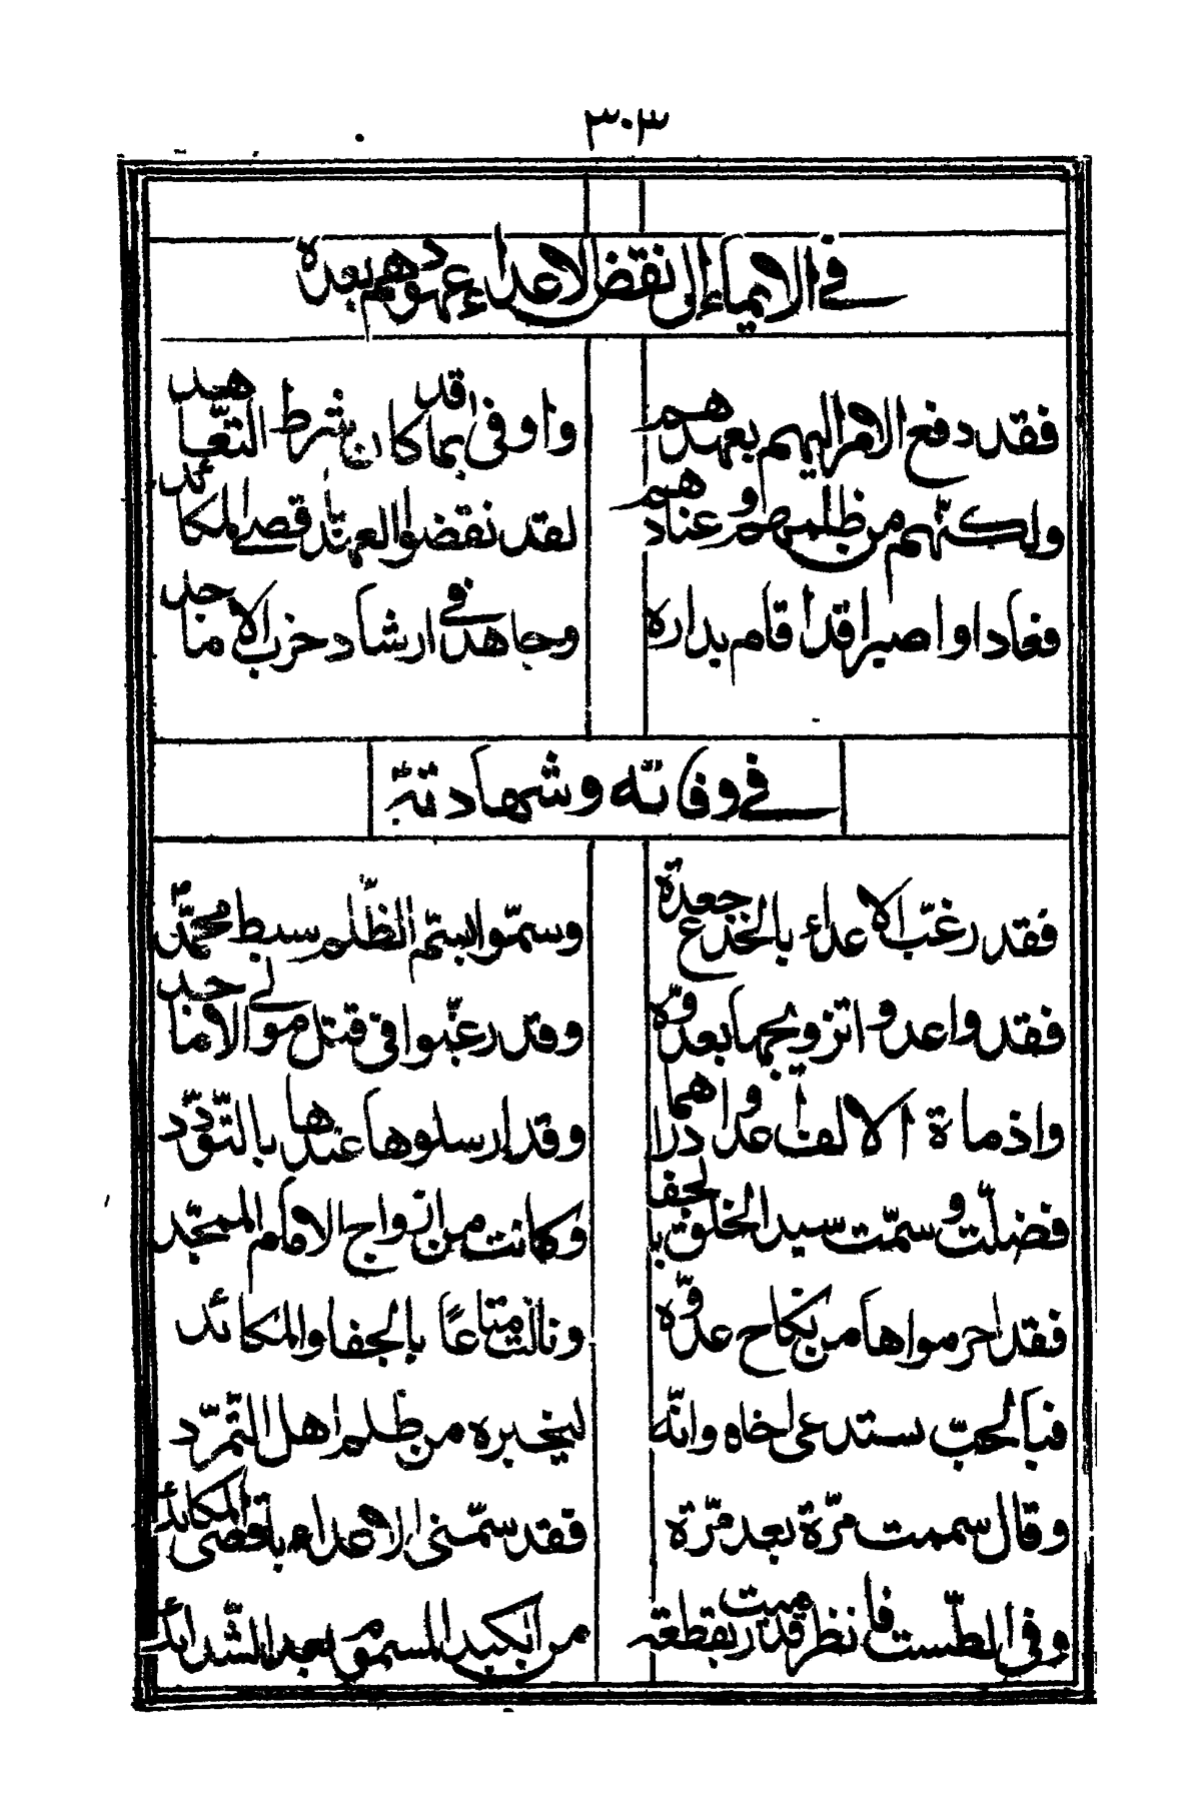 ٣٠٣
في الايماء إلى نقض الاعداء عهودهم بعده
فقد دفع الامر اليهم بعهدهم واوفى بما قد كان شرط التعاهيد
ولكنّهم من ظلمهم وعنادهم لقد نقضوا العهد قصد المكائد
فعادا واصبرا قد اقام بداره وجاهد في ارشاد حزب الاماجد
في وفاته وشهادته
فقد رغّب الاعداء بالخدع جعدة وسمّوا بسمّ الظّلم سبط محمّد
فقد واعدوا تزويجها بعدوّه وقد رغّبوا في قتل مولى الاماجد
واذ ماة الالف عدوا دراهما وقد ارسلوها عندها بالتّودّد
فضلّت وسمّت سيد الخلق بالجفا وكانت من ازواج الامام الممجّد
فقد احرموها من نكاح عدوّه ونالت متاعًا بالجفا والمكائد
فبالحبّ يستدعى اخاه وانّه ليخبره من ظلم اهل التّمرّد
وقال سممت مرّة بعد مرّة فقد سمّنى الاعداء باقصى المكائد
وفي الطّست فانظر قد رميت بقطعة من الكبد المسموم بعد الشّدائد